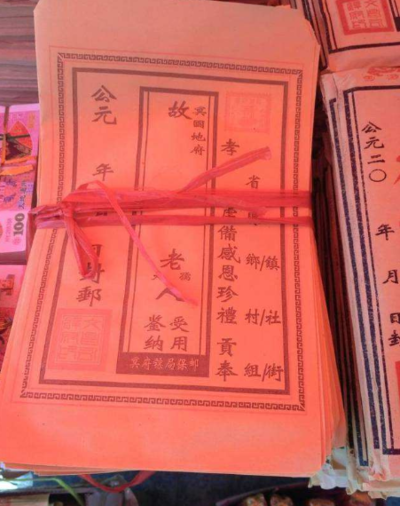 省 鄉/鎮 村/社 組/街
孝 備感恩珍禮貢奉
冥國地府
故 老 人
受用
鑒納
公元 年 日封郵
冥府 局保郵
公元二〇 年 月 日封
100